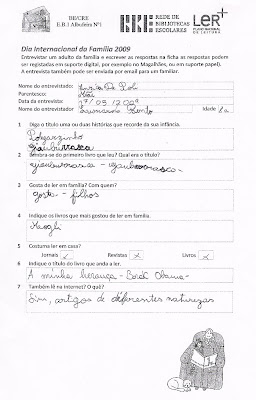 BE/CRE
E.B.1 Albufeira Nº1
REDE DE
BIBLIOTECAS
ESCOLARES
LER+
PLANO NACIONAL
DE LEITURA
Dia Internacional da Família 2009
Entrevistar um adulto da família e escrever as respostas na ficha as respostas podem
ser registadas em suporte digital, por exemplo no Magalhães, ou em suporte papel).
A entrevista também pode ser enviada por email para um familiar.
Nome do entrevistado:
Parentesco:
Data da entrevista:
Nome do entrevistador:
Idade 8a
1 Diga o título uma ou duas histórias que recorde da sua infância.
Polegarzinho
2 Lembra-se do primeiro livro que leu? Qual era o título?
3 Gosta de ler em família? Com quem?
gosto - filhos
4 Indique os livros que mais gostou de ler em família.
Maogli
5 Costuma ler em casa?
Jornais x Revistas x Livros x
6 Indique o título do livro que anda a ler.
A minha herança - Barak Obama -
7 Também lê na Internet? O quê?
Sim, artigos de diferentes naturezas